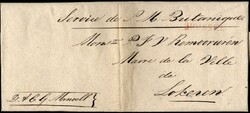 Service de M. Britannique
Monsr P J V Remoorteren
Maire de la Ville
de
Lokeren
D. A. C. G. Maxwell